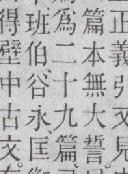 正義引
篇本無大誓
爲二十九篇
班伯谷永匡
得壁中古文